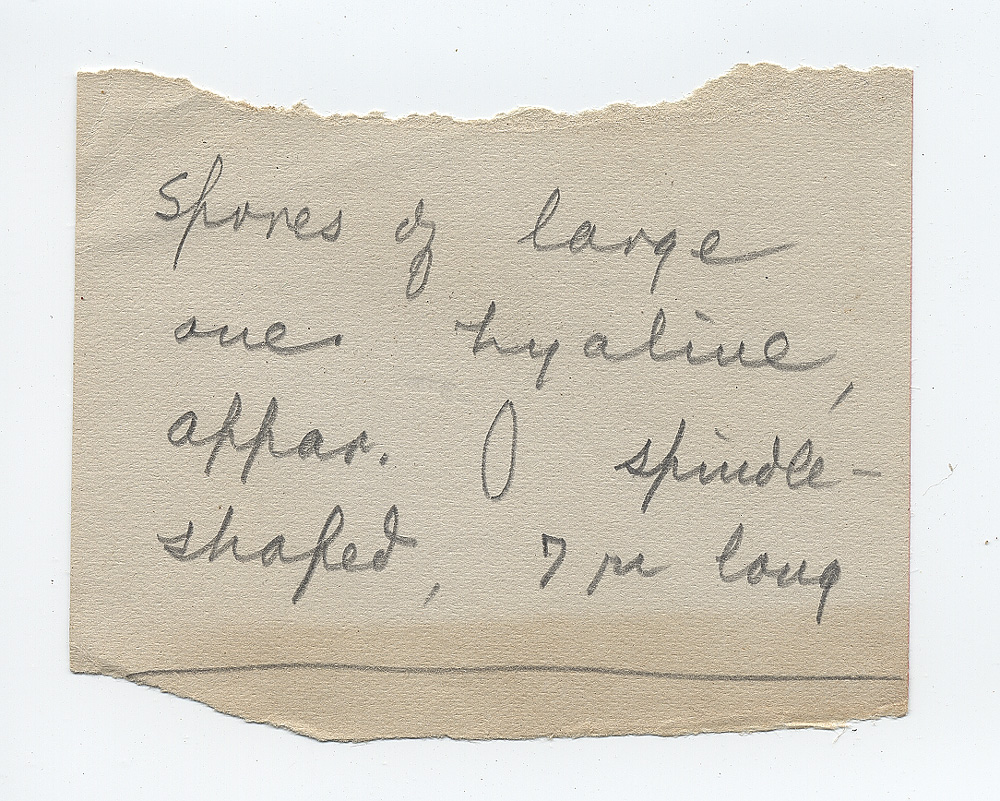 Spores of large
one. hyaline,
appar. spindle-
shaped, 7 µ long